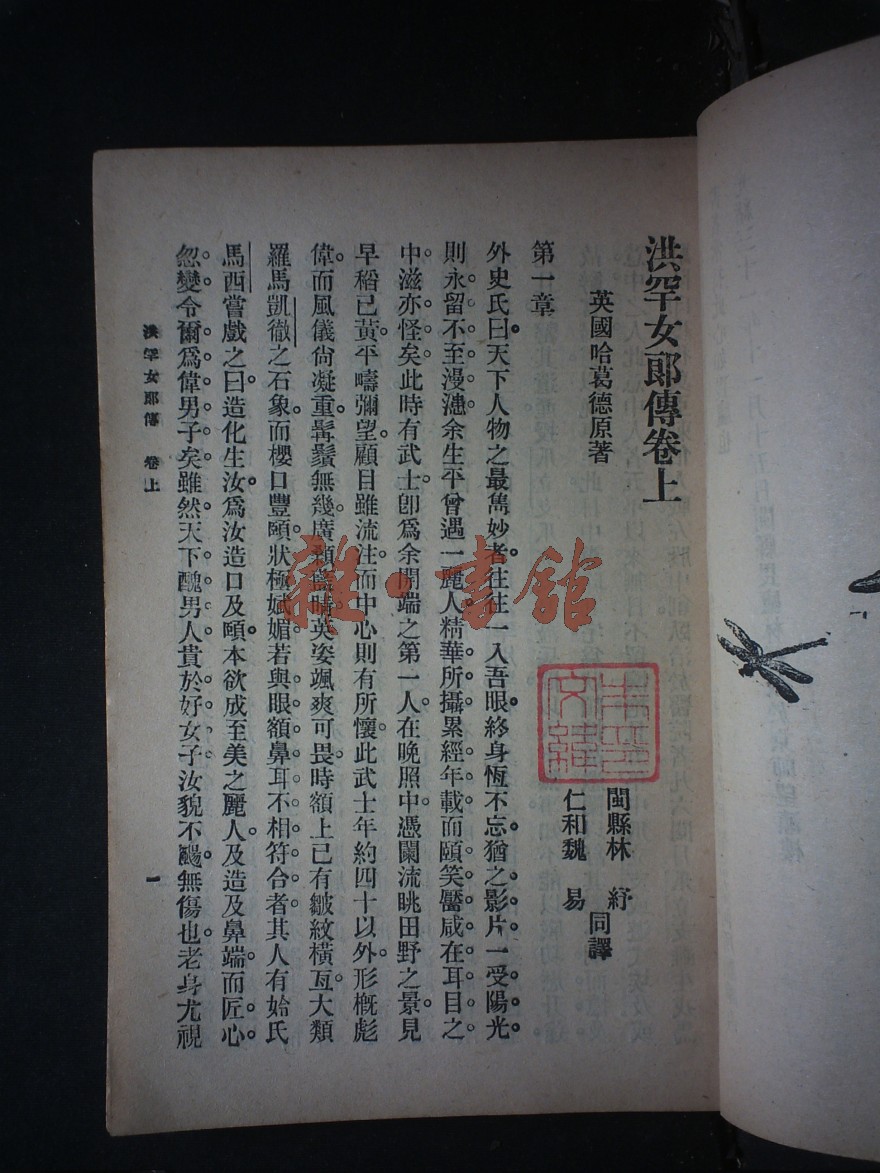 洪罕女郎傳卷上
英國哈葛德原著
閩縣林　紓
仁和魏　易
同譯
第一章
外史氏曰天下人物之最雋妙者往往一入吾眼終身恆不忘猶之影片一受陽光
則永留不至漫漶余生平曾遇一麗人精華所攝累經年載而頤笑靨咸在耳目之
中滋亦怪矣此時有武士卽爲余開端之第一人在晚照中憑闌流眺田野之景見
早稻已黃平疇彌望顧目雖流注而中心則有所懷此武士年約四十以外形概彪
偉而風儀尙凝重髯鬚無幾廣顙藍睛英姿颯爽可畏時額上已有皺紋橫亙大類
羅馬凱徹之石象而櫻口豐頤狀極娬媚若與眼額鼻耳不相符合者其人有始氏
馬西嘗戲之曰造化生汝爲汝造口及頤本欲成至美之麗人及造及鼻端而匠心
忽變令爾爲偉男子矣雖然天下醜男人貴於好女子汝貌不颺無傷也老身尤視
洪罕女郎傳　卷上
一
雜·書館